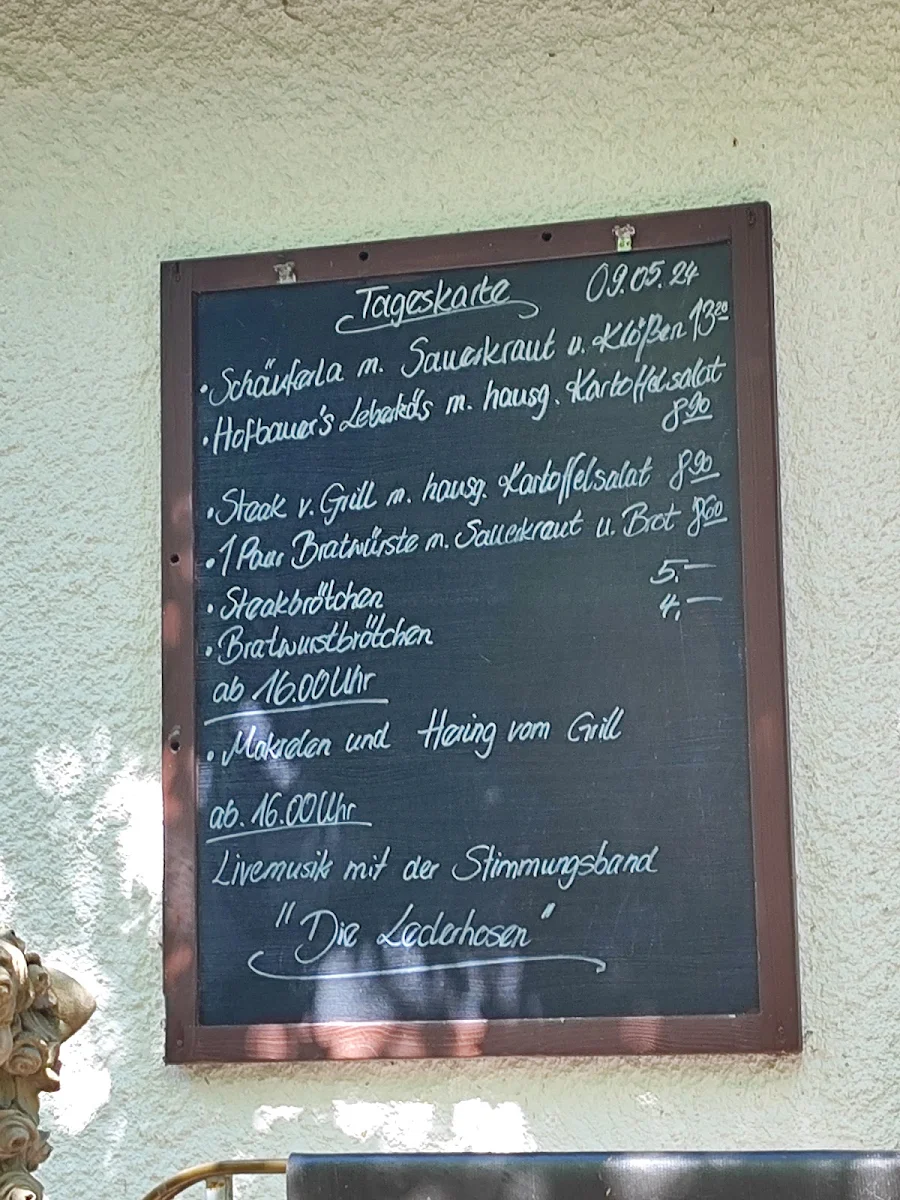 Tageskarte 09.05.24
• Schäuferla m. Sauerkraut u. Klößen 13²⁰
• Hofbauer's Leberkäs m. hausg. Kartoffelsalat
8⁹⁰
• Steak v. Grill m. hausg. Kartoffelsalat 8⁹⁰
• 1 Paar Bratwürste m. Sauerkraut u. Brot 8⁶⁰
• Steakbrötchen 5.—
• Bratwurstbrötchen 4,—
ab 16.00 Uhr
• Makrelen und Hering vom Grill
ab. 16.00 Uhr
Livemusik mit der Stimmungsband
"Die Lederhosen"